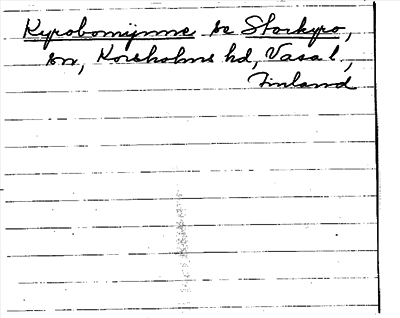 Kyrobominne se Storkyro,
sn, Korsholms hd, Vasa l,
Finland